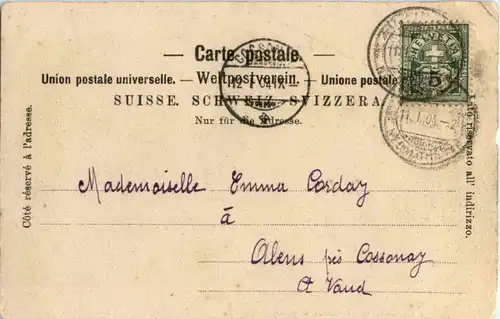 Carte postale.
Union postale universelle. — Weltpostverein. — Unione postale
SUISSE. SCHWEIZ. SVIZZERA
Nur für die Adresse.
Côté réservé à l'adresse.
riservato all' indirizzo.
COSSONAY
12. I. 04. IX
HELVETIA
5
11. I. 04. - 2
Mademoiselle Emma Corday
à
Alens près Cossonay
Ct Vaud